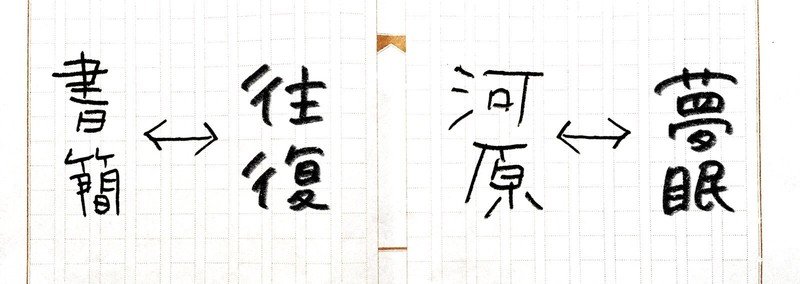 書簡↔往復
河原↔夢眠